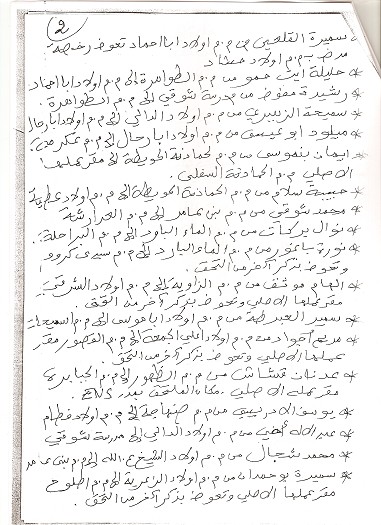 2
* سميرة القلعي من م.م اولاد ابا احماد تعوض رخصة
مرض ب م.م اولاد
* حليلة ايت حمو من م.م الظواهرة الى م.م اولاد ابا احماد
* رشيدة مفوض من مدرسة شوقي الى م.م الظواهرة
* سميحة الزبيري من م.م اولاد الدالي الى م.م اولاد ابا رحال
* ميلود ابو عيسى من م.م اولاد ابا رحال الى م.م
* ايمان بنموسى من م.م لحمادنة الحويطة الى مقر عملها
الاصلي م.م الحمادنة السفلى
* حبيبة سلام من م.م الحمادنة الحويطة الى م.م اولاد عطية
* محمد شوقي من م.م بني عامر الى م.م الحرارشة
* نوال بركات من م.م الماء البارد الى م.م السراحلة
* نورة باعور من م.م الماء البارد الى م.م سيدي كروم
وتعوض بتذكر آخر من التحق
* الهام موثق من م.م الزاوية الى م.م اولاد الشرقية
مقر عملها الاصلي وتعوض بتذكر آخر من التحق
* سمير العبد من م.م اولاد ابا موسى الى م.م اسميحات
* مريم أجواد من م.م اولاد علي الجمعة الى م.م القصور مقر
عملها الاصلي وتعوض بتذكر آخر من التحق
* عدنان قشاش من م.م الظهور الى م.م الجبابرة
مقر عمله الاصلي مكان الملتحق ب ENS
* يوسف الادريسي من م.م صنهاجة الى م.م اولاد فطام
* عبد الاله من م.م اولاد الدالي الى مدرسة شوقي
* محمد شجال من م.م اولاد الشيخ ع.الله الى م.م بني عامر
* سميرة بوحمد من م.م اولاد الزعرية الى م.م الطلوح
مقر عملها الاصلي وتعوض بتذكر آخر من التحق